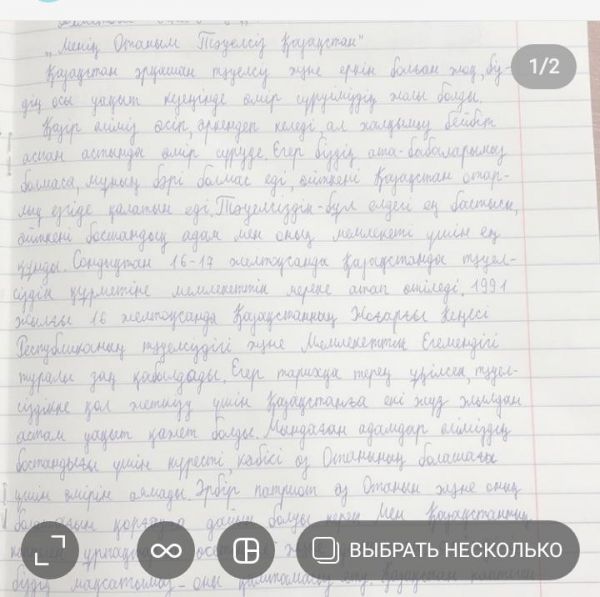 „Менің Отаным Тәуелсіз Қазақстан"
Қазақстан әрқашан тәуелсіз және еркін болған жоқ, бұ-
1/2
дің осы уақыт күецінде өмір сүруіміздің жолы болды.
Қазір еліміз өсіп, әркендеп келеді, ал халқымыз бейбіт
аспан астында өмір сүруде. Егер біздің ата-бабаларымыз
болмаса, мұның бәрі болмас еді, өйткені Қазақстан отар-
лық езгіде қалатын еді. Тәуелсіздік-бұл елдегі ең бастысы,
өйткені бостандық адам мен оның мемлекеті үшін ең
құнды. Сондықтан 16-17 желтоқсанда Қазақстанда тәуел-
сіздік құрметіне мемлекеттік мереке атап өтіледі. 1991
жылғы 16 желтоқсанда Қазақстанның Жоғарғы Кеңесі
Республиканың тәуелсіздігі және Мемлекеттік Егемендігі
туралы заң қабылдады. Егер тарихқа терең үңілсек, тәуел-
сіздікке қол жеткізу үшін Қазақстанға екі жүз жылдан
астам уақыт қажет болды. Мыңдаған адамдар еліміздің
бостандығы үшін күресті, көбісі өз Отанының болашағы
үшін өмірін аямады. Әрбір патриот өз Отанын және оның
болашағын қорғауға дайын болуы керек. Мен Қазақстанның
ВЫБРАТЬ НЕСКОЛЬКО
біздің мақсатымыз - оны ұмытпамау Қазақстан